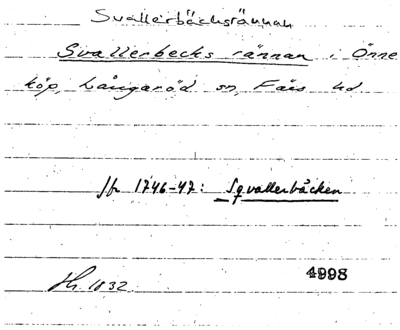 Svallerbäcksrännan
Svallerbecks rännan i Önne
köp, Långaröd sn, Färs hd
Jfr 1746-47: Sqvallerbäcken
4998
Hr. 1832.